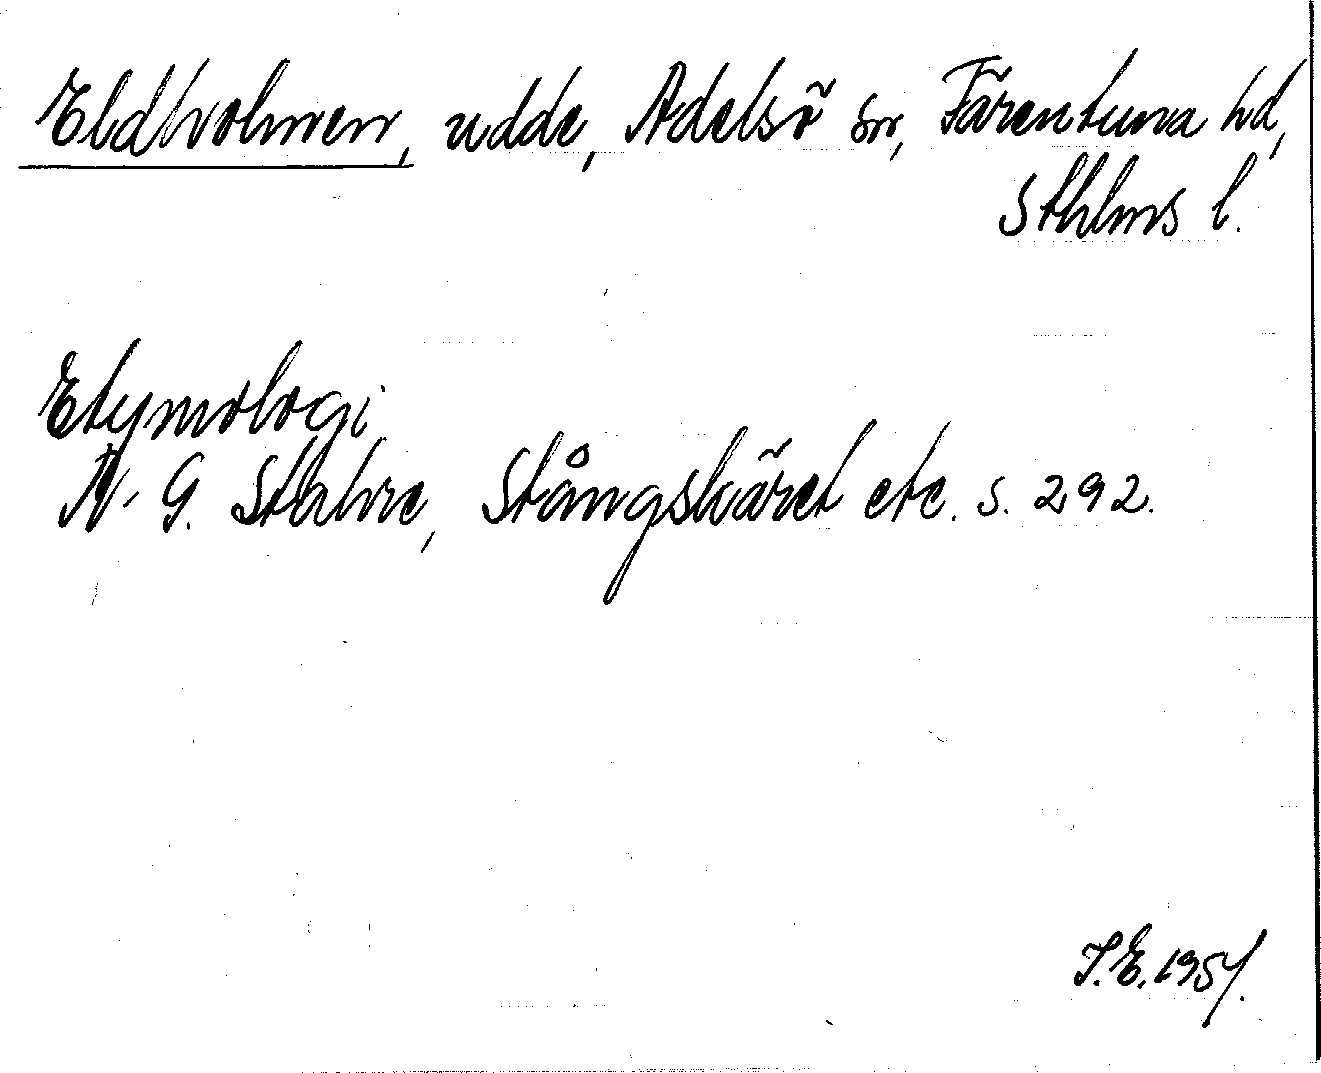 Eldholmen, udde, Adelsö sn, Färentuna hd,
Sthlms l.
Etymologi
N. G. Stahre, Stångskäret etc. s. 292.
I.E. 1957.